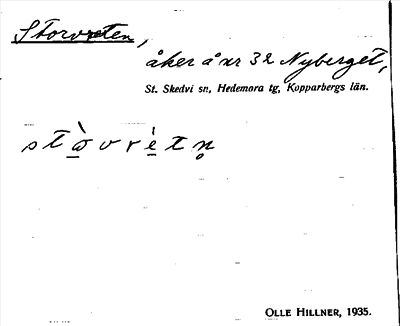 Storvreten,
åker å nr 32 Nyberget,
St. Skedvi sn, Hedemora tg, Kopparbergs län.
stò̱vrè̱tn̥
OLLE HILLNER, 1935.